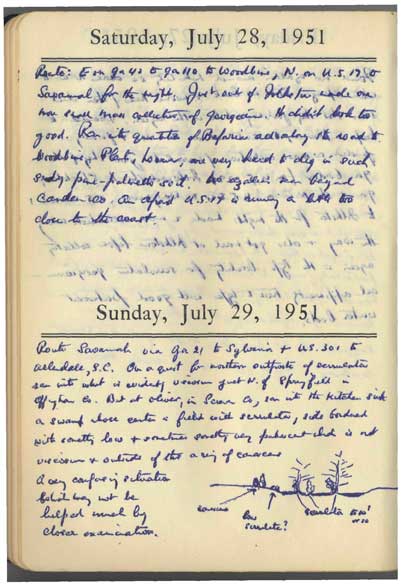 Saturday, July 28, 1951
Route: E on Ga 40 to Ga 110 to Woodbine, N. on U.S. 17 to
Savannah for the night. Just out of Folkston made one
more small mass collection of georgiana. It didn't look too
good. Ran into quantities of Befaria along the road to
Woodbine. Plants, however, are very hard to dig in such
sandy pine-palmetto soil. No azaleas seen beyond
Camden Co. U.S. 17 is running a little too
close to the coast.
Sunday, July 29, 1951
Route Savannah via Ga 21 to Sylvania & U.S. 301 to
Allendale, S.C. On a quest for northern outposts of serrulata
ran into what is evidently viscosum just N. of Springfield in
Effingham Co. But at Oliver, in Screven Co, ran into the kitchen sink
a swamp whose center is filled with serrulata, side bordered
with smaller low & sometimes smaller very pubescent which is not
viscosum & outside of this a ring of canescens
A very confusing situation
which may not be
helped much by
closer examination.
canescens
low
serrulata?
serrulata to 10'